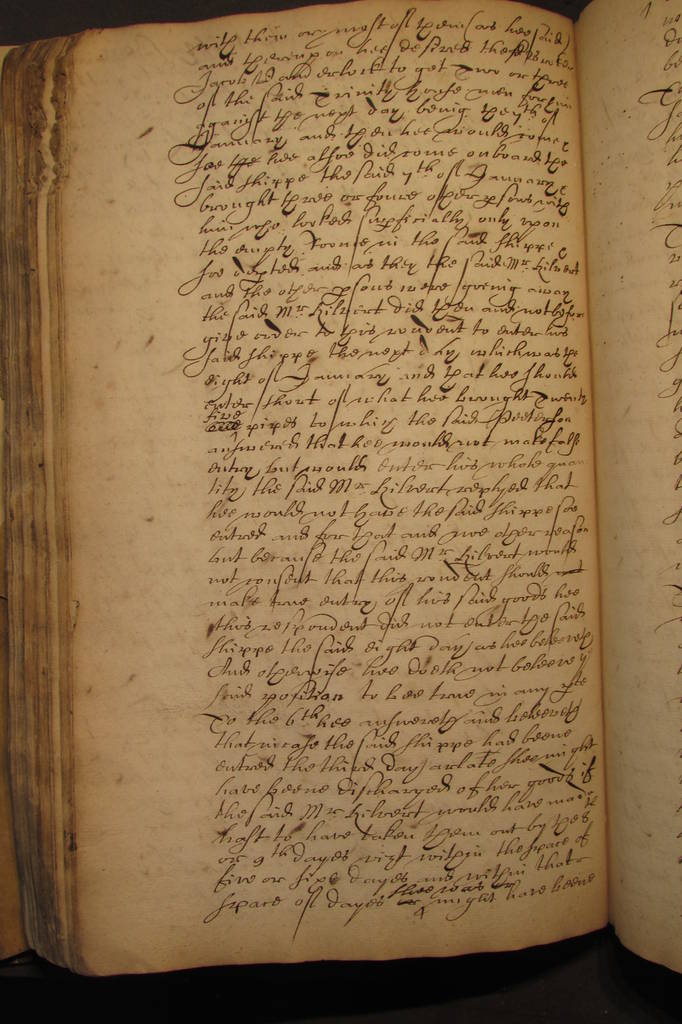 with them or most of them (as hee said)
and thereupon hee desired the sd Peter
Jacobs and to get two or three
of the said Trinity house men
against the next day, being the 7th of
January and then hee would come
see the hee alsoe did come onboard the
said shippe the said 7th of January &
brought three or foure other psons with
him who looked supficially only upon
the empty roome in the said shippe &
soe depted and as they the said Mr. Hilvert
and the other psons were goeing away
the said Mr Hilvert did then and not before
give order to this rondent to enter his
said shippe the next day which was the
eight of January and that hee should
enter short of what hee brought twenty
five pipes to which the said Peeterson
answered that hee would not make false
entry but would enter his whole quan
tity, the said Mr Hilvert replyed that
hee would not have the said shippe soe
entred and for that and noe other reason
but because the said Mr Hilvert would
not consent that this rondent should
make true entry of his said goods hee
this respondent did not enter the said
shippe the said eight day as hee beleeveth
And otherwise hee doeth not beleeve ye
said position to bee true in any pte
To the 6th hee answereth and beleeveth
that in case the said shippe had beene
entred the third day at late shee might
have beene discharged of her goods if
the said Mr Hilvert would have made
hast to have taken them out by the 8
or 9th dayes vizt within the space of
five or sixe dayes and within that
space of dayes shee was or might have beene